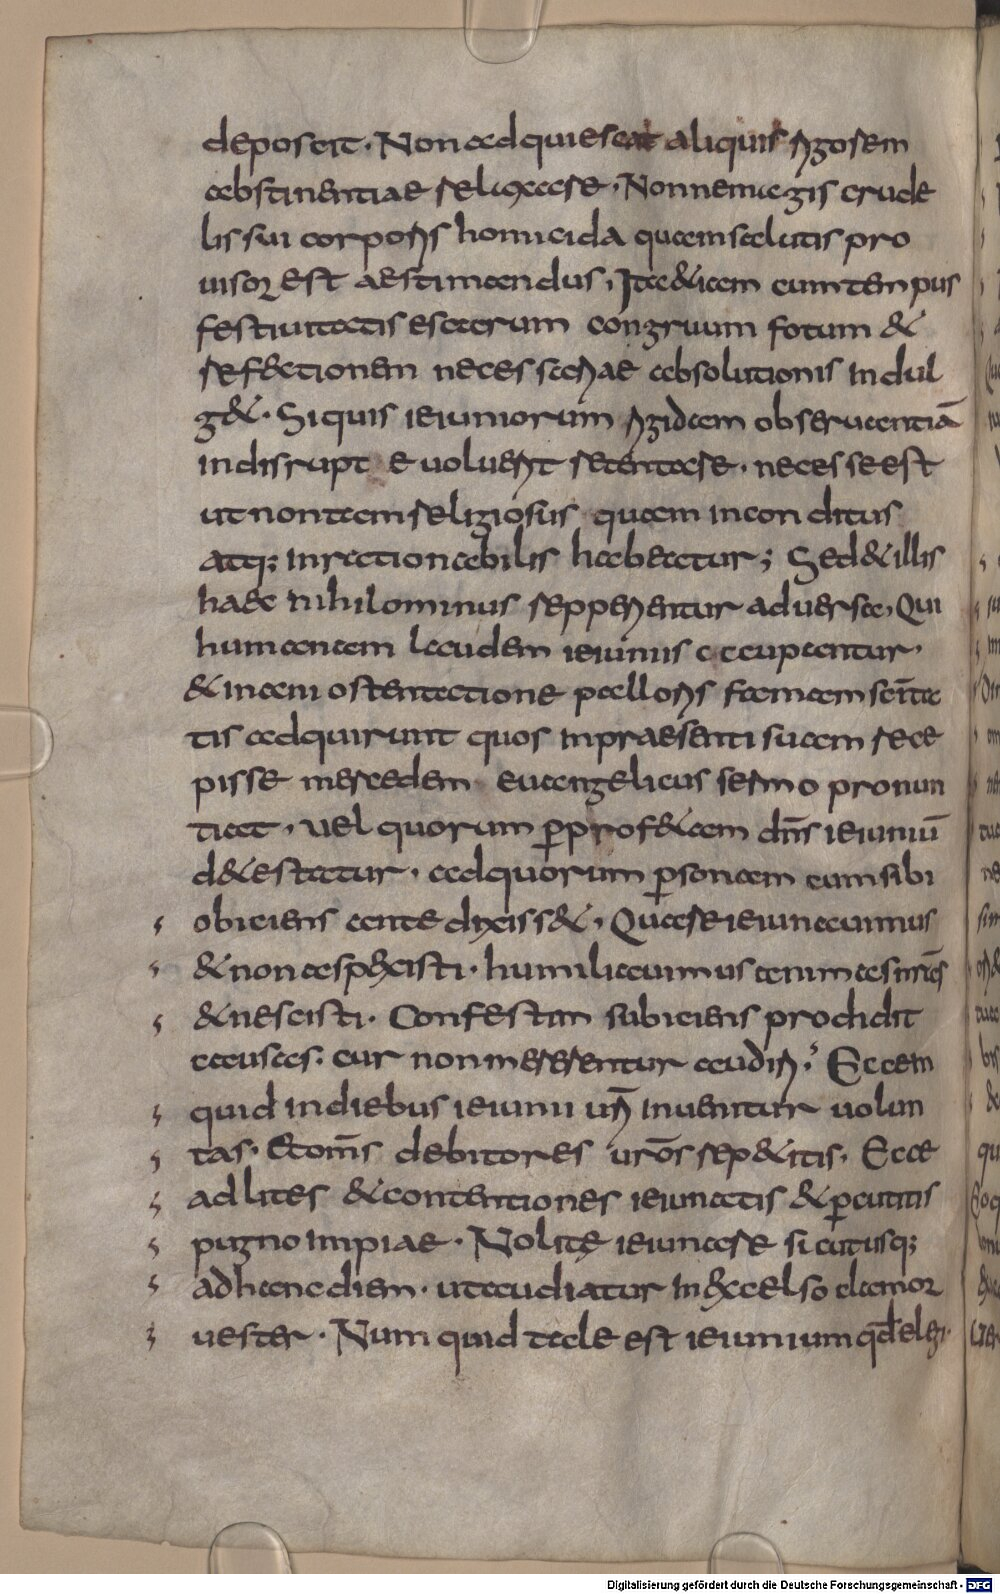 deposcit. Non adquiescat aliquis rigorem
abstinentiae relaxare. Nonne magis crude
lis sui corporis homicida quam salutis pro
uisor est aestimandus, Ita & iam cum tempus
festiuitatis escarum congruum fotum &
refectionem necessariae absolutionis indul
g&. Si quis ieiuniorum rigidam obseruantiā
indisrupte uoluerit retentare. necesse est
ut non tam religiosus quam inconditus
atq; inrationabilis habeatur; Sed & illis
haec nihilominus repperientur aduersa, Qui
humanam laudem ieiuniis aucupantur.
& inani ostentatione palloris famam sc̄ita
tis adquirunt quos in praesenti suam rece
pisse mercedem euangelicus sermo pronun
tiat. uel quorum p̱ prof&am dn̄s ieiuniū
d&estatur. ad quorum p̱sonam cum sibi
obiciens ante dixiss&. Quare ieiunauimus
& non aspexisti. humiliauimus animas nr̄as
& nescisti. Confestim subiciens prodidit
causas. cur non merentur audiri. Ecce in
quid in diebus ieiunii ur̄i inuenitur uolun
tas. Et om̄s debitores ur̄os rep&itis. Ecce
ad lites & contentiones ieiunatis & p̱cutitis
pugno impiae. Nolite ieiunare sicut usq;
ad hanc diem. ut audiatur in excelso clamor
uester. Num quid tale est ieiunium qđ elegi.
Digitalisierung gefördert durch die Deutsche Forschungsgemeinschaft - DFG